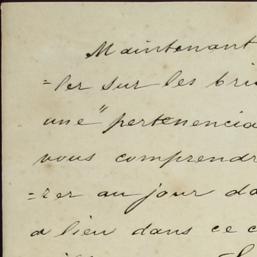 Maintenant
=ler sur les bri
une "pertenencia
vous comprendr
=rer au jour da
a lieu dans ce c